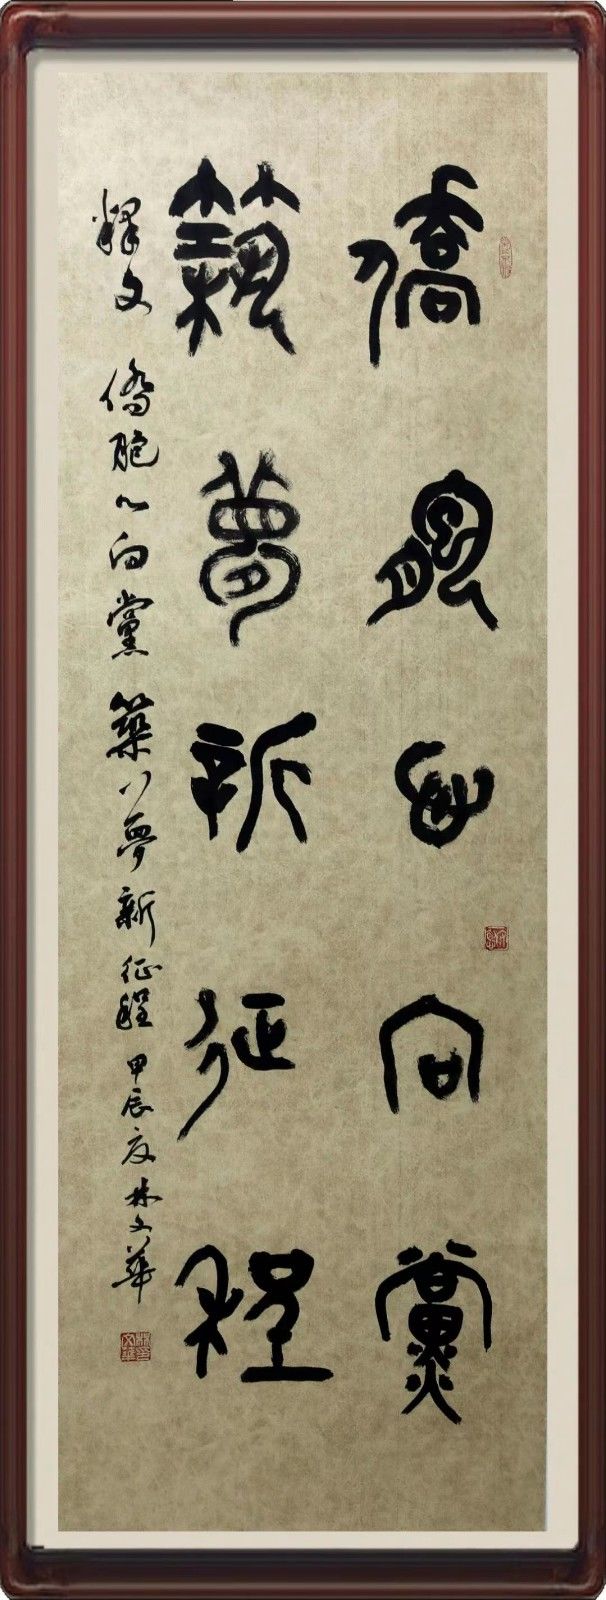 僑胞心向黨
築夢新征程
釋文 僑胞心向黨 築夢新征程 甲辰夏 林文華